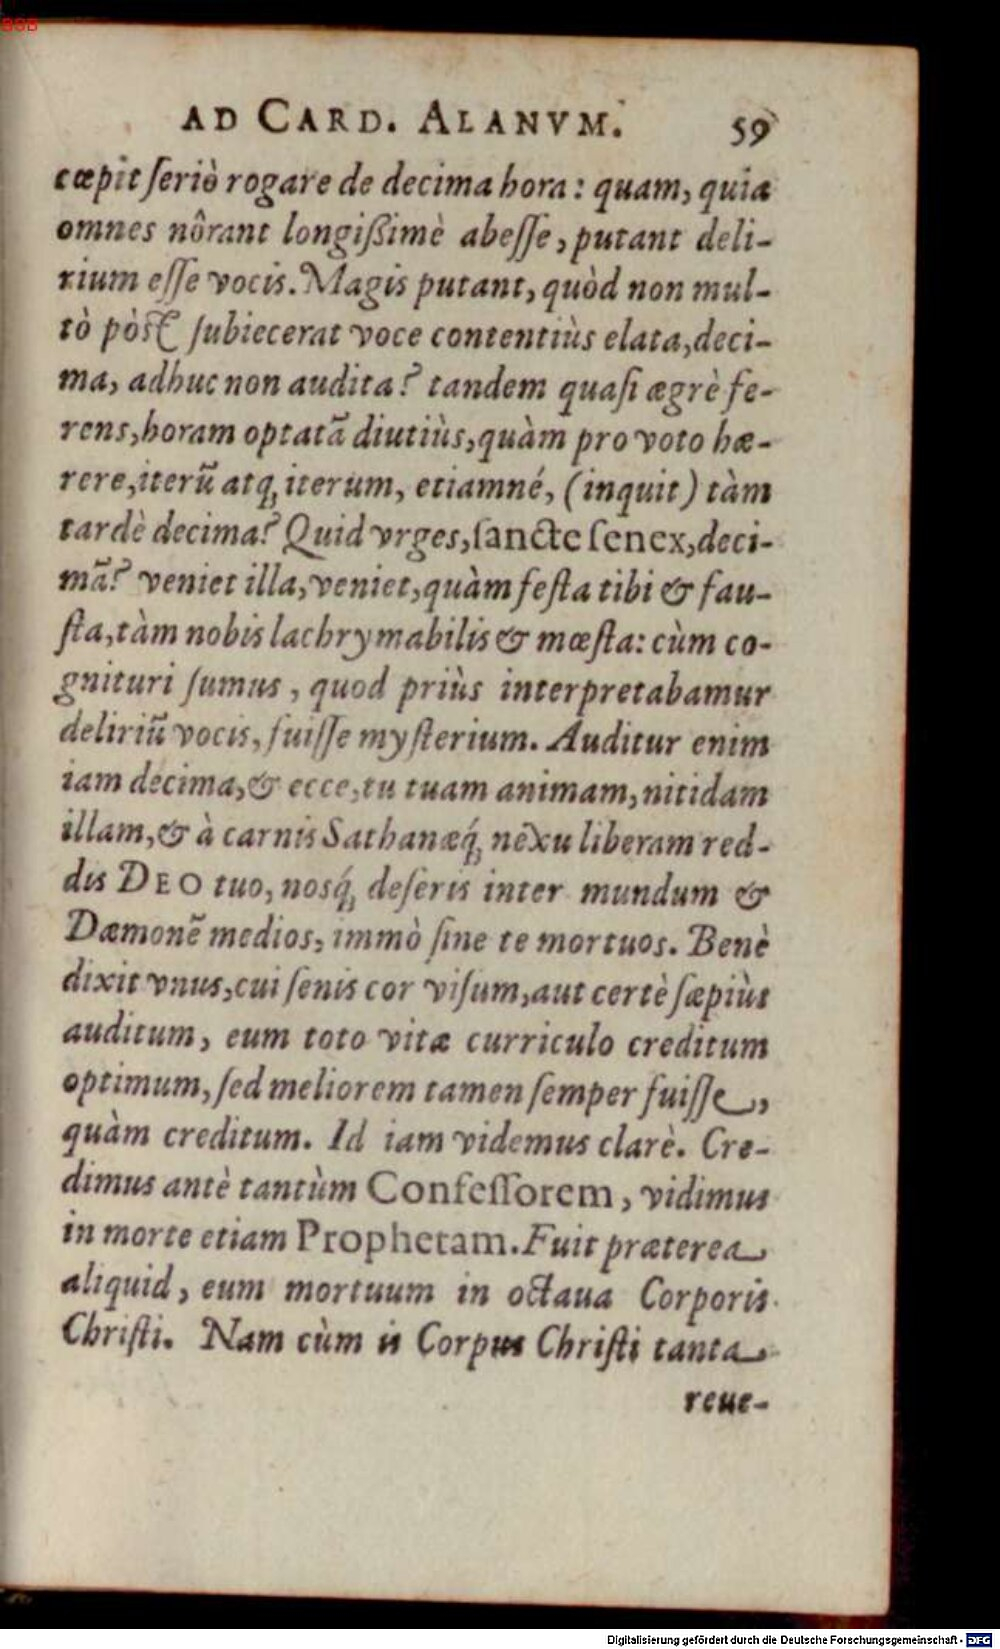 BSB
AD CARD. ALANVM. 59
cœpit ſeriò rogare de decima hora: quam, quia
omnes nôrant longißimè abeſſe, putant deli-
rium eſſe vocis. Magis putant, quòd non mul-
tò pòſt ſubiecerat voce contentiùs elata, deci-
ma, adhuc non audita? tandem quaſi ægrè fe-
rens, horam optatã diutiùs, quàm pro voto hæ-
rere, iterũ atq́ iterum, etiamné, (inquit) tàm
tardè decima? Quid vrges, ſancte ſenex, deci-
mã? veniet illa, veniet, quàm feſta tibi & fau-
ſta, tàm nobis lachrymabilis & mœſta: cùm co-
gnituri ſumus, quod priùs interpretabamur
deliriũ vocis, fuiſſe myſterium. Auditur enim
iam decima, & ecce, tu tuam animam, nitidam
illam, & à carnis Sathanæq́ nexu liberam red-
dis DEO tuo, nosq́ deſeris inter mundum &
Dæmonẽ medios, immò ſine te mortuos. Benè
dixit vnus, cui ſenis cor viſum, aut certè ſæpiùs
auditum, eum toto vitæ curriculo creditum
optimum, ſed meliorem tamen ſemper fuiſſe,
quàm creditum. Id iam videmus clarè. Cre-
dimus antè tantùm Confeſſorem, vidimus
in morte etiam Prophetam. Fuit præterea
aliquid, eum mortuum in octaua Corporis
Chriſti. Nam cùm is Corpus Chriſti tanta
reue-
Digitalisierung gefördert durch die Deutsche Forschungsgemeinschaft - DFG